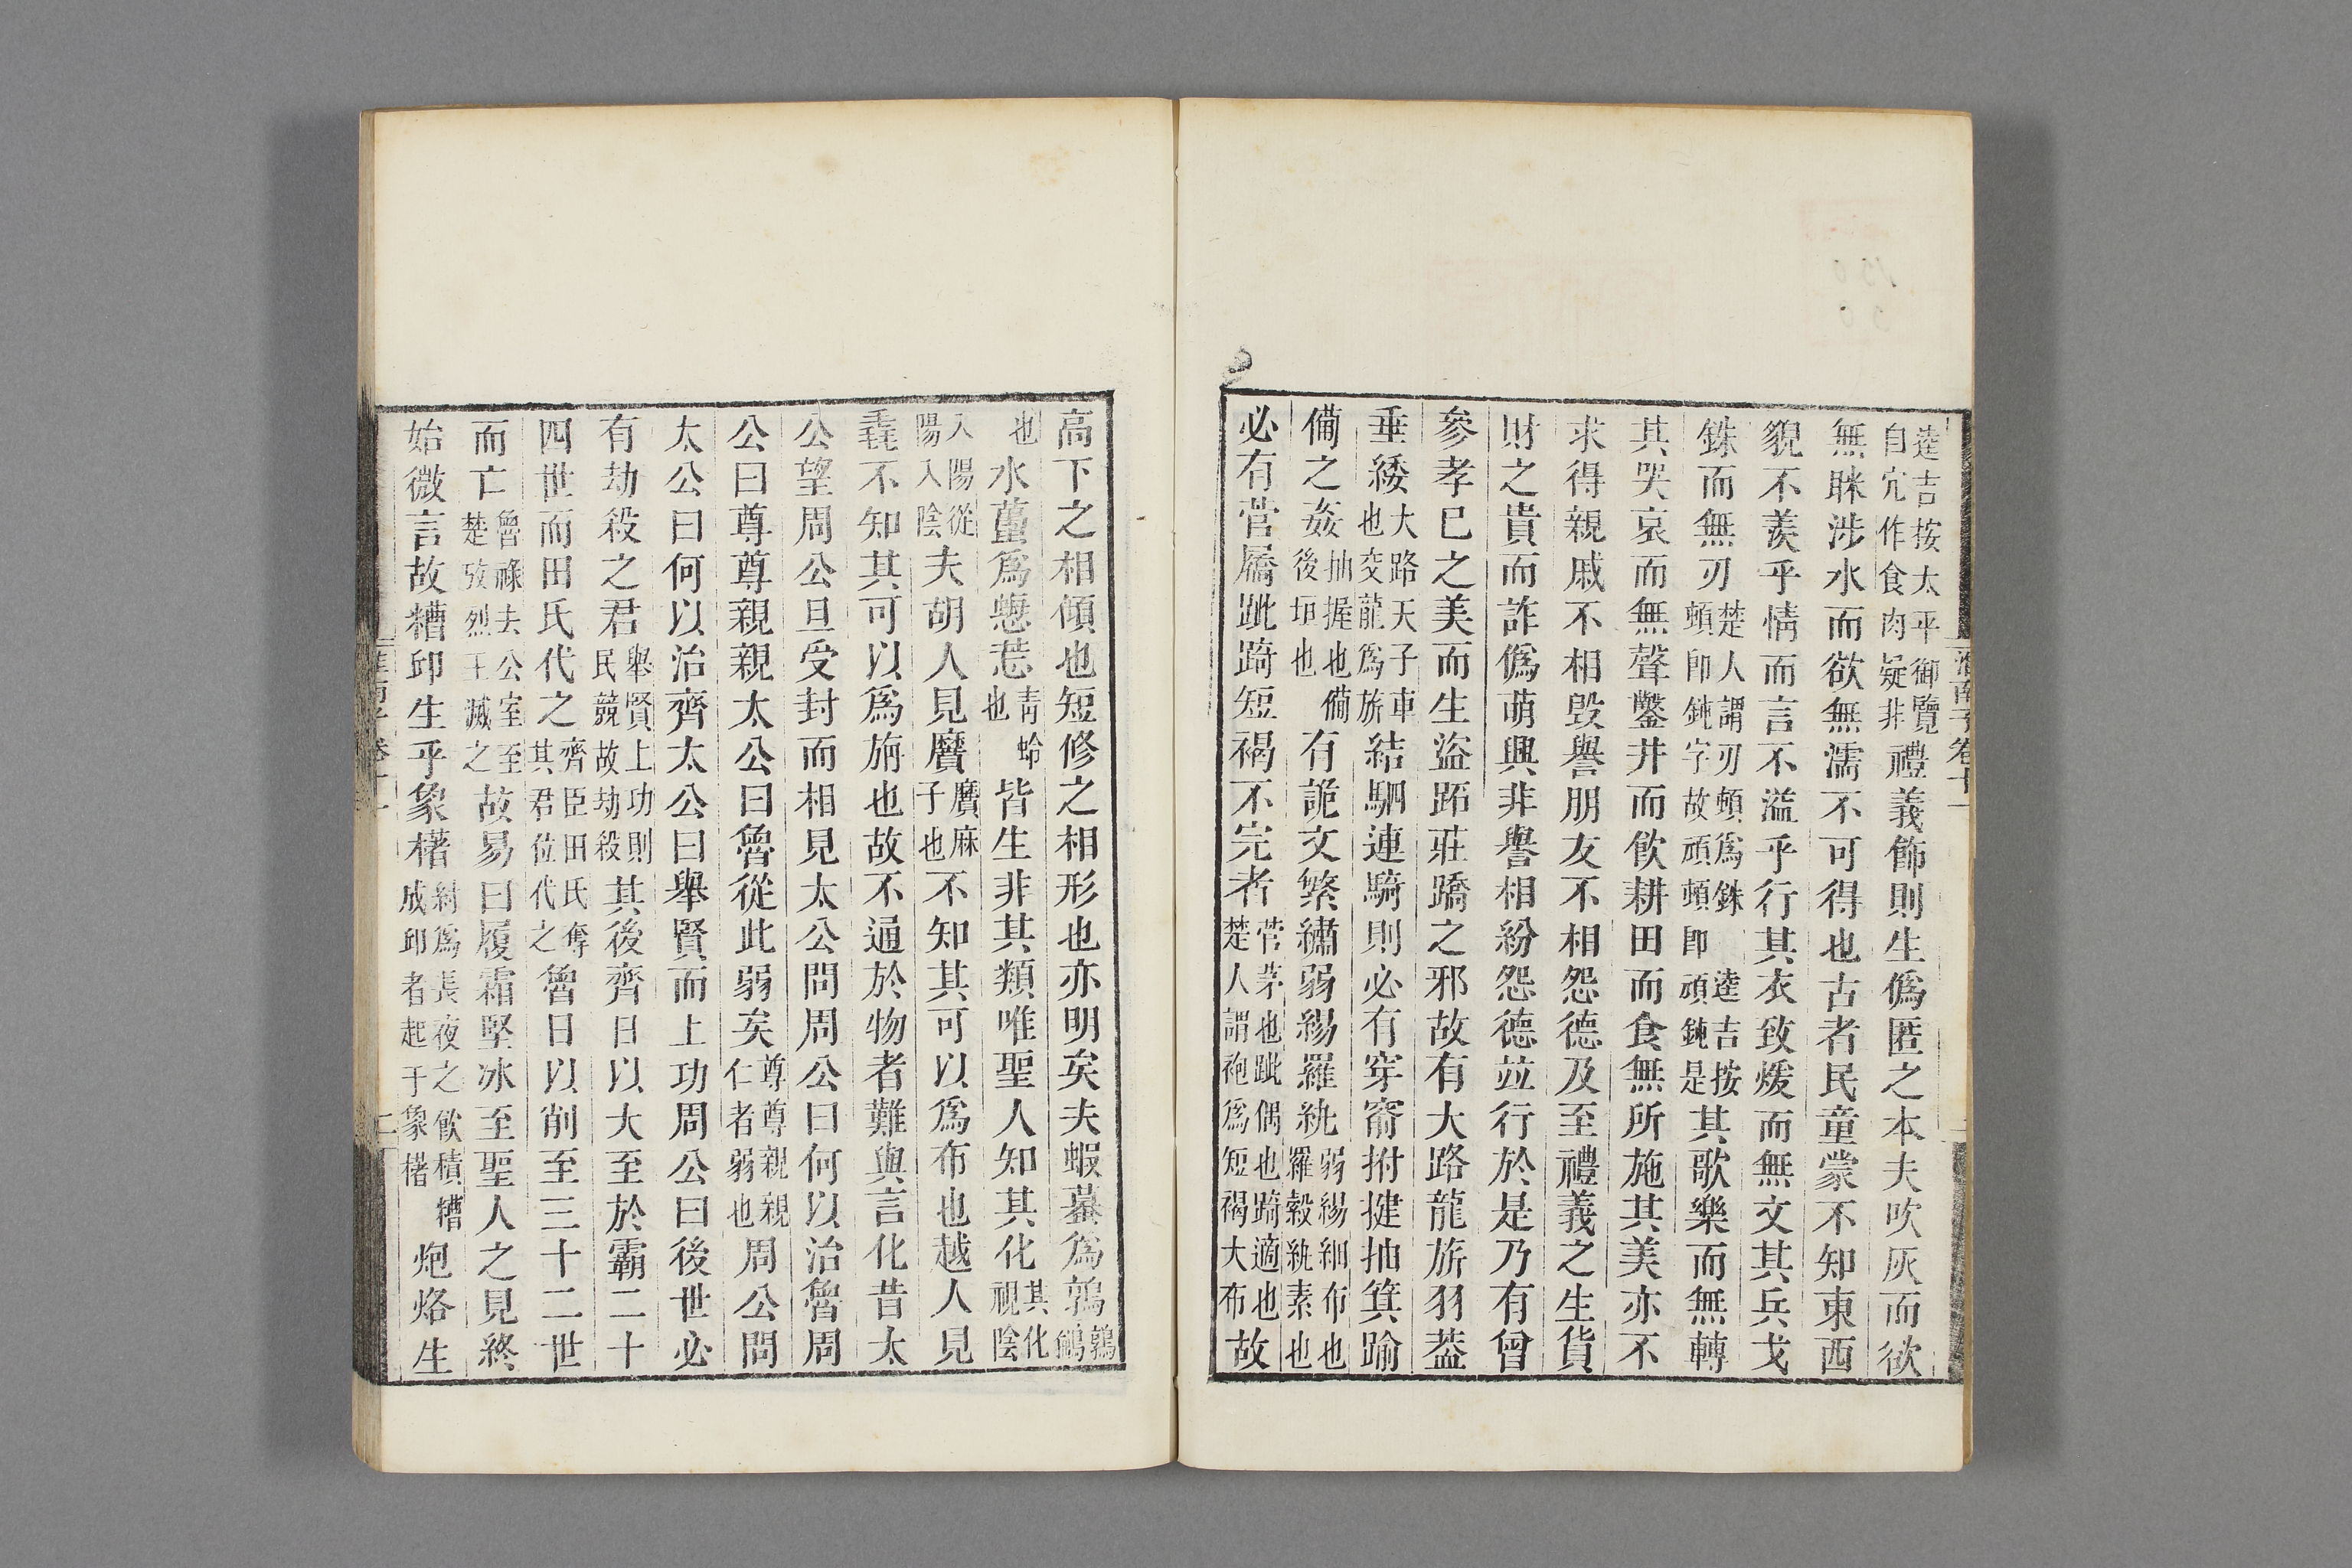 逵吉按太平御覽自宂作食肉疑非禮義飾則生僞匿之本夫吹灰而欲
無眯涉水而欲無濡不可得也古者民童蒙不知東西
貌不羨乎情而言不溢乎行其衣致煖而無文其兵戈
銖而無刃楚人謂刃頓爲銖頓卽鈍字故頑頓卽頑鈍是逵吉按其歌樂而無轉
其哭哀而無聲鑿井而飮耕田而食無所施其美亦不
求得親戚不相毀譽朋友不相怨德及至禮義之生貨
財之貴而詐僞萌興非譽相紛怨德竝行於是乃有曾
參孝已之美而生盜跖莊蹻之邪故有大路龍旂羽葢
垂緌大路天子車也交龍爲旂結駟連騎則必有穿窬拊揵抽箕踰
備之姦抽握也備後垣也有詭文繁繡弱緆羅紈弱緆細布也羅縠紈素也
必有菅屩跐踦短褐不完者菅茅也跐偶也踦適也楚人謂袍爲短褐大布故
淮南子卷十一
高下之相傾也短修之相形也亦明矣夫蝦蟇爲鶉鶉鷸
也水蠆爲蟌莣靑蛉也皆生非其類唯聖人知其化其化視陰
入陽從陽入陰夫胡人見黂黂麻子也不知其可以爲布也越人見
毳不知其可以爲旃也故不通於物者難與言化昔太
公望周公旦受封而相見太公問周公曰何以治魯周
公曰尊尊親親太公曰魯從此弱矣尊尊親親仁者弱也周公問
太公曰何以治齊太公曰舉賢而上功周公曰後世必
有劫殺之君舉賢上功則民競故劫殺其後齊日以大至於霸二十
四世而田氏代之齊臣田氏奪其君位代之魯日以削至三十二世
而亡魯祿去公室至楚攷烈王滅之故易曰履霜堅冰至聖人之見終
始微言故糟邱生乎象櫡紂爲長夜之飮積糟成邱者起于象櫡炮烙生